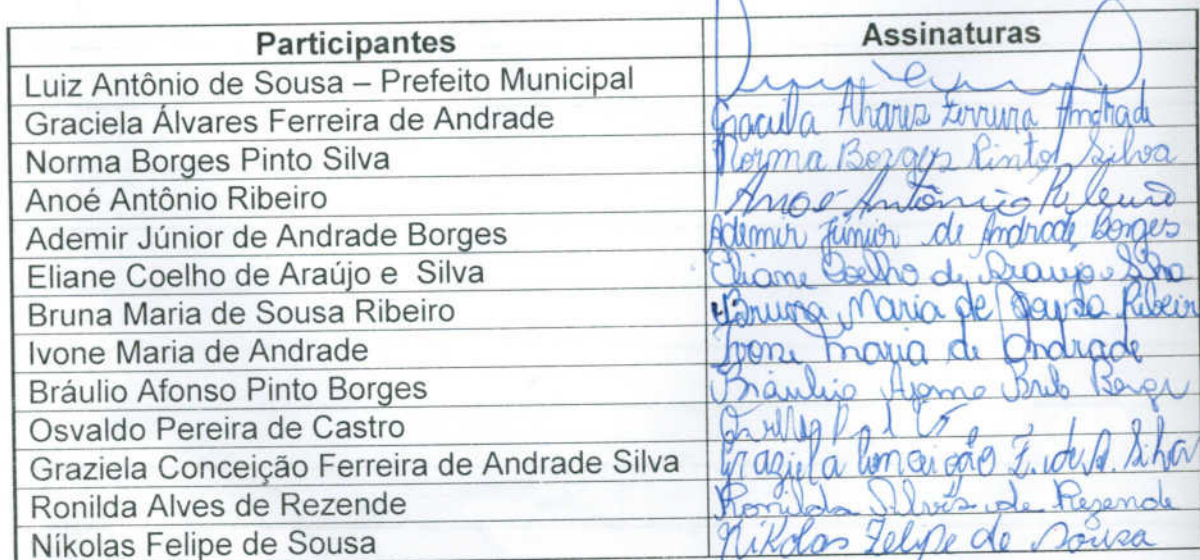 Participantes Assinaturas
Luiz Antônio de Sousa – Prefeito Municipal
Graciela Álvares Ferreira de Andrade Graciela Alvares Ferreira Andrade
Norma Borges Pinto Silva Norma Borges Pinto Silva
Anoé Antônio Ribeiro Anoé Antônio Ribeiro
Ademir Júnior de Andrade Borges Ademir Júnior de Andrade Borges
Eliane Coelho de Araújo e Silva Eliane Coelho de Araujo e Silva
Bruna Maria de Sousa Ribeiro Bruna Maria de Sousa Ribeiro
Ivone Maria de Andrade Ivone Maria de Andrade
Bráulio Afonso Pinto Borges Bráulio Afonso Borges
Osvaldo Pereira de Castro
Graziela Conceição Ferreira de Andrade Silva Graziela Conceição F. de A. Silva
Ronilda Alves de Rezende Ronilda Alves de Rezende
Níkolas Felipe de Sousa Níkolas Felipe de Sousa